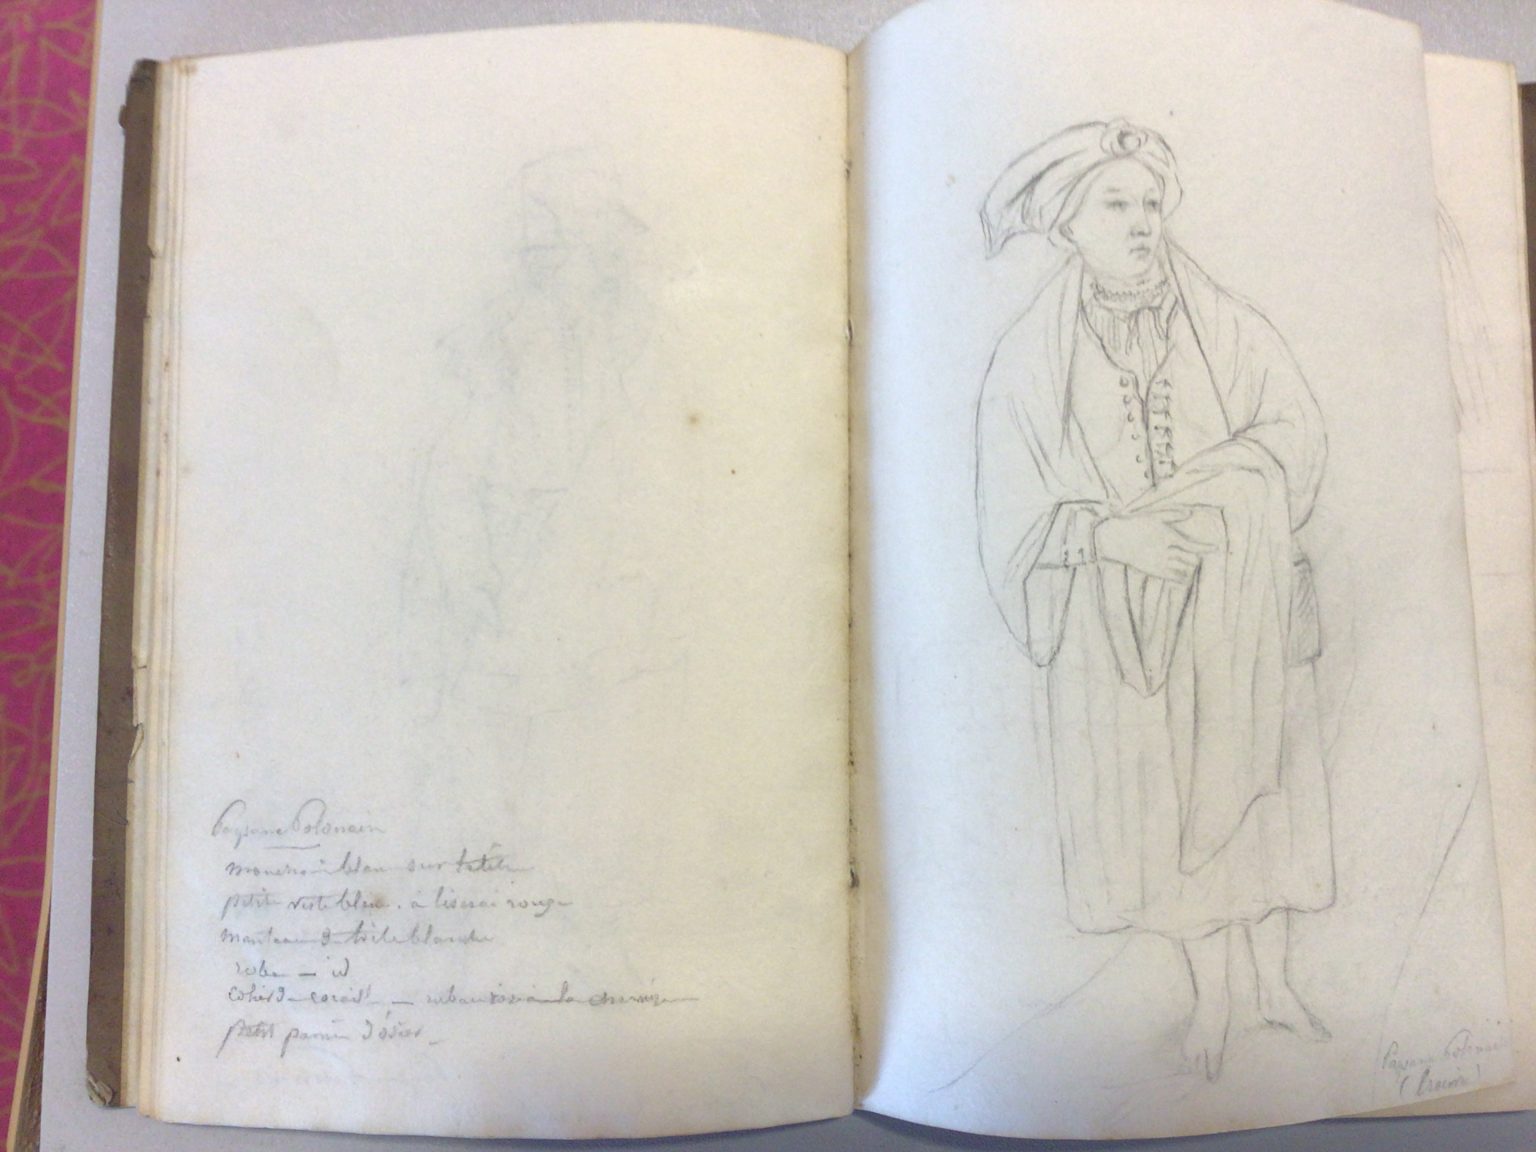 Paysane Polonais
mouchoir bleu sur la tête
petite veste bleu. à liserai rouge
manteau de toile blanche
robe — id
colier de corail — ruban rose à la chemise
petit panier d'ösier
Paysane Polonais
(